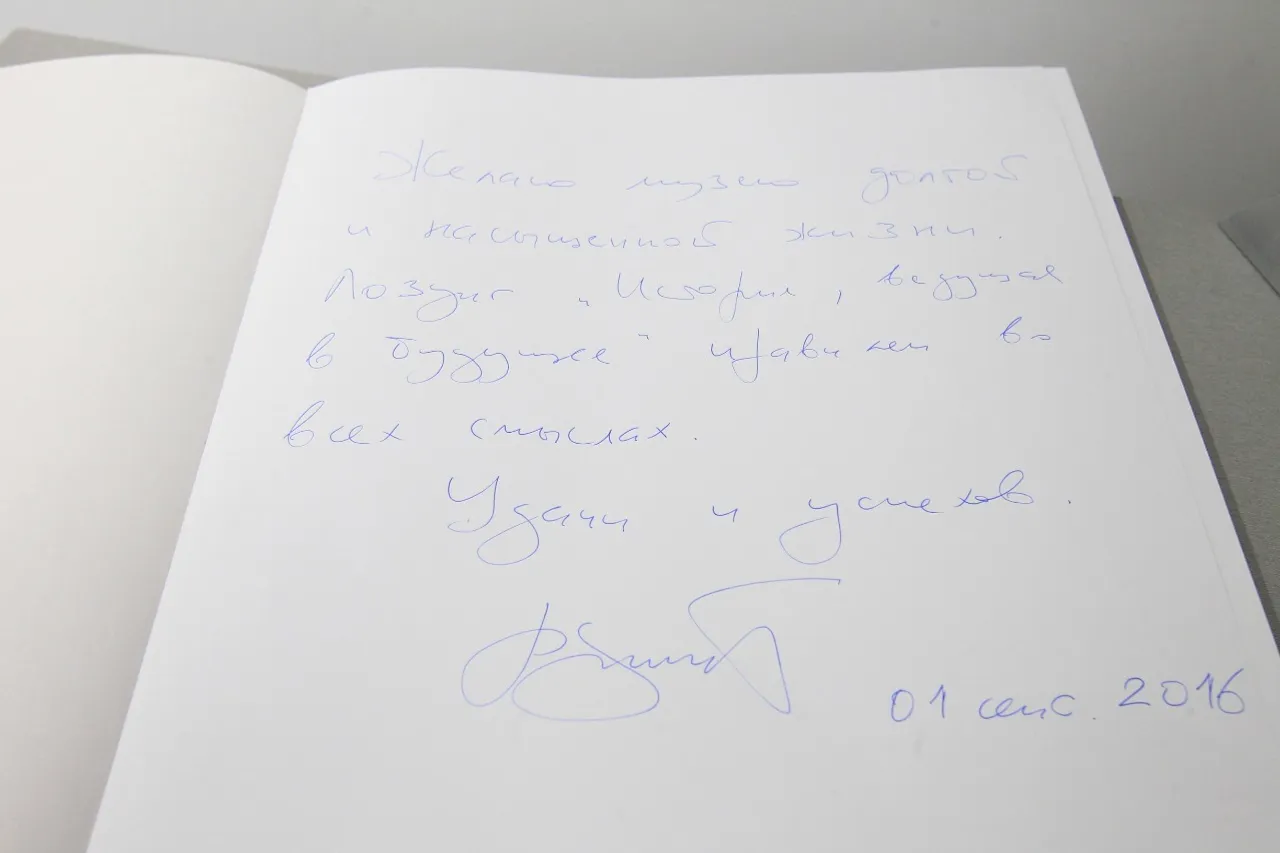 Желаю музею долгой
и насыщенной жизни.
Лозунг „История, ведущая
в будущее" правилен во
всех смыслах.
Удачи и успехов.
01 сент. 2016